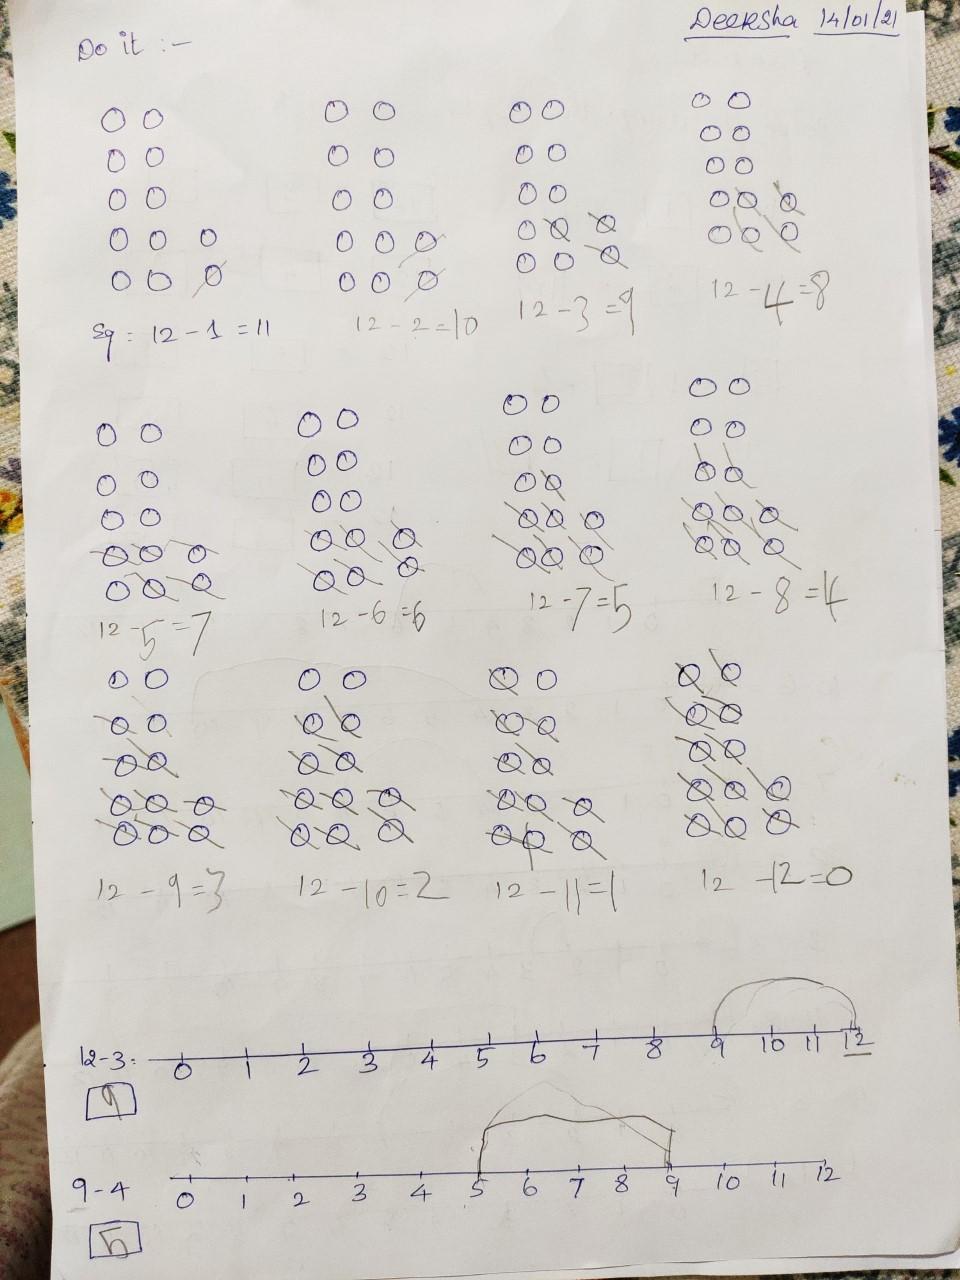 Deeksha 14/01/21
Do it :-
Eg : 12 - 1 = 11
12 - 2 = 10
12 - 3 = 9
12 - 4 = 8
12 - 5 = 7
12 - 6 = 6
12 - 7 = 5
12 - 8 = 4
12 - 9 = 3
12 - 10 = 2
12 - 11 = 1
12 - 12 = 0
12-3: 0 1 2 3 4 5 6 7 8 9 10 11 12
9
9-4 0 1 2 3 4 5 6 7 8 9 10 11 12
5